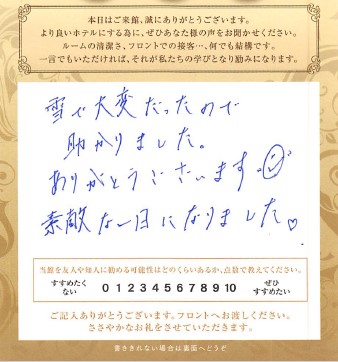 本日はご来館、誠にありがとうございます。
より良いホテルにする為に、ぜひあなた様の声をお聞かせください。
ルームの清潔さ、フロントでの接客…、何でも結構です。
一言でもいただければ、それが私たちの学びとなり励みになります。
雪で大変だったので
助かりました。
ありがとうございます。
素敵な一日になりました♡
当館を友人や知人に勧める可能性はどのくらいあるか、点数で教えてください。
すすめたくない 0 1 2 3 4 5 6 7 8 9 10 ぜひすすめたい
ご記入ありがとうございます。フロントへお渡しください。
ささやかなお礼をさせていただきます。
書ききれない場合は裏面へどうぞ